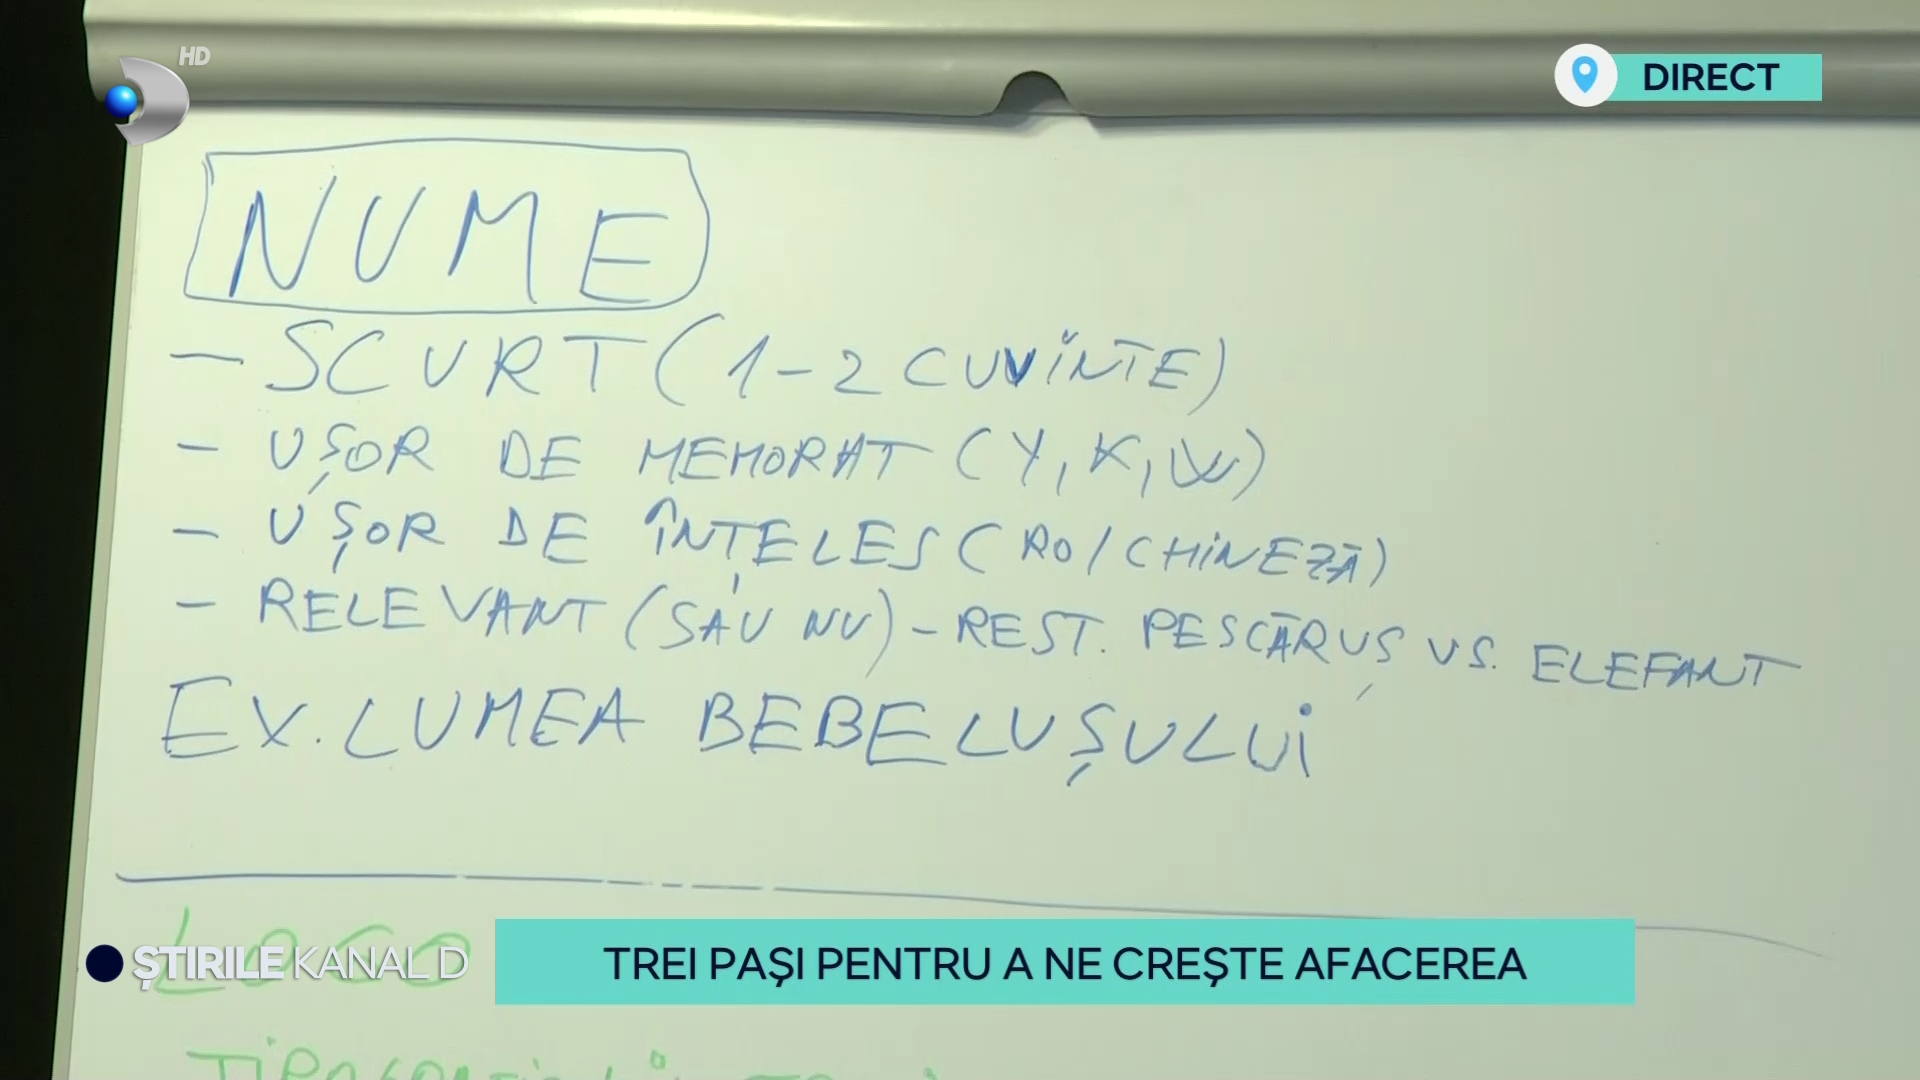 HD
DIRECT
NUME
- SCURT (1-2 CUVINTE)
- UȘOR DE MEMORAT (Y, K, W)
- UȘOR DE ÎNȚELES (RO/CHINEZĂ)
- RELEVANT (SAU NU) - REST. PESCĂRUȘ VS. ELEFANT
EX. LUMEA BEBELUȘULUI
LOGO
ȘTIRILE KANAL D
TREI PAȘI PENTRU A NE CREȘTE AFACEREA